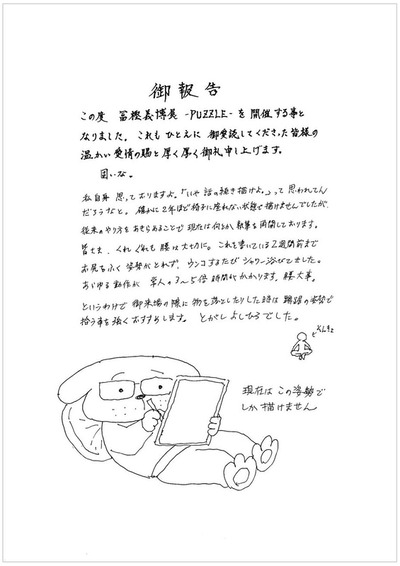 御報告
この度 冨樫義博展 -PUZZLE- を開催する事と
なりました。これもひとえに御愛読してくださった皆様の
温かい愛情の賜と厚く厚く御礼申し上げます。
固いな。
私自身思っておりますよ。「いや話の続き描けよ。」って思われてん
だろうなと。確かに2年ほど椅子に座れない状態で描けませんでしたが、
従来のやり方をあきらめることで現在は何とか執筆を再開しております。
皆さま、くれぐれも腰は大切に。これを書いている2週間前まで
お尻をふく姿勢がとれず、ウンコするたびシャワー浴びてました。
あらゆる動作が 常人の3~5倍時間がかかります。腰大事。
というわけで御来場の際に物を落としたりした時は蹲踞の姿勢で
拾う事を強くおすすめします。とがしよしひろでした。
そんきょ
現在はこの姿勢で
しか描けません